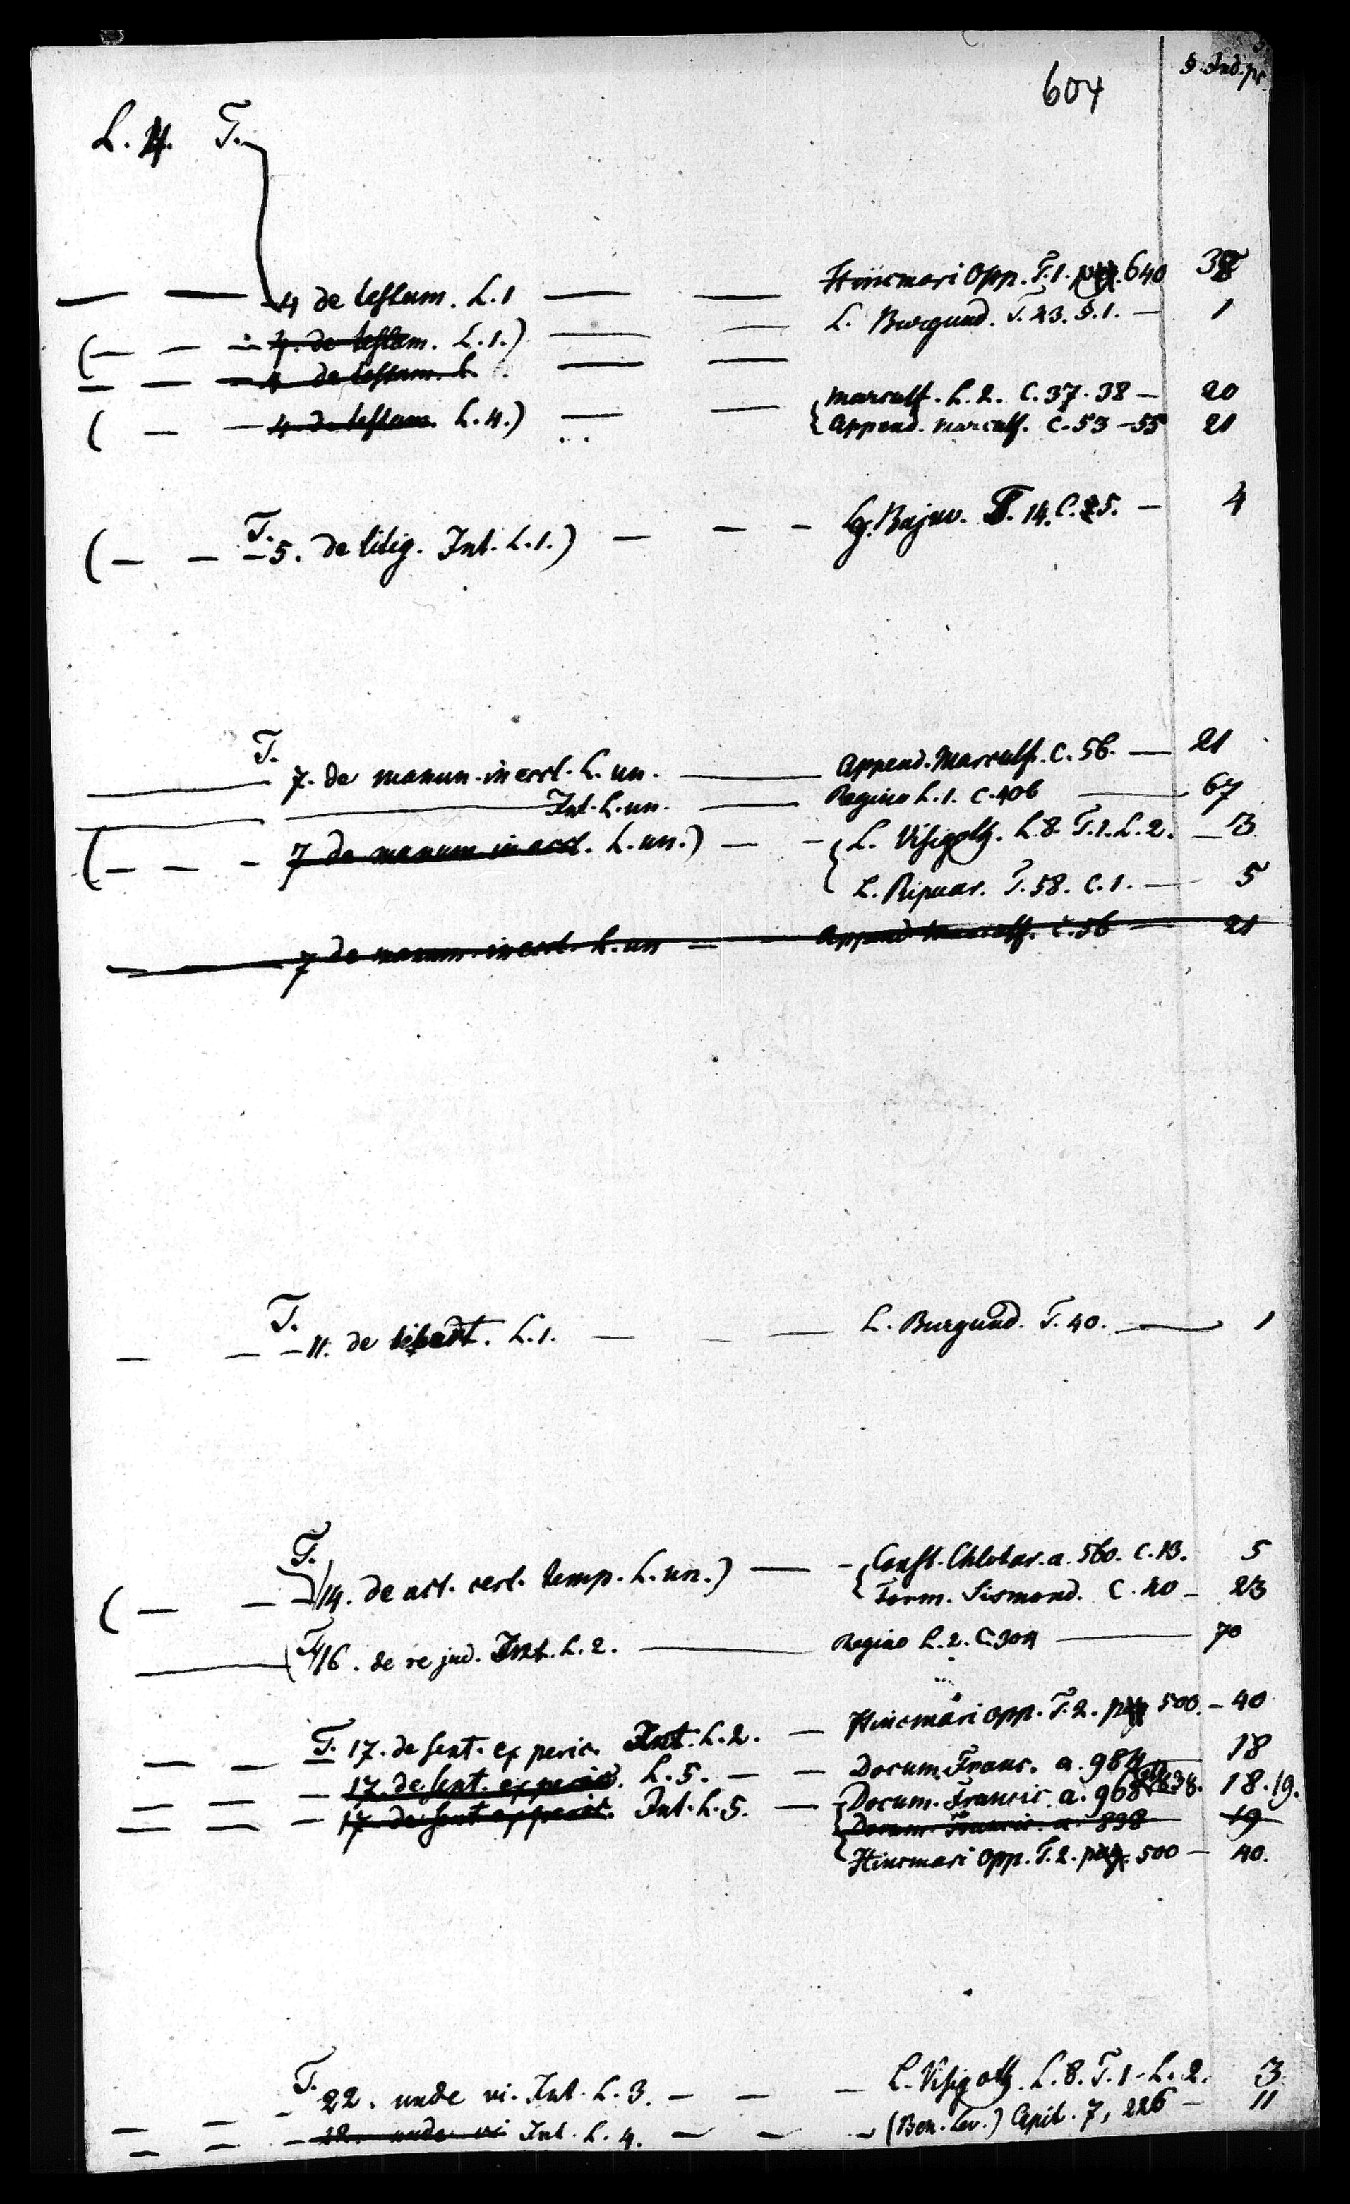 604
§. Ind. pr.
L. 4. T.
— — 4 de testam. L. 1 — — Hincmari Opp. T. 1. pag. 640 38
(— — — 4. de testam. L. 1.) — — L. Burgund. T. 43. §. 1. — 1
— — — 4 de testam. L. — —
( — — 4. de testam. L. 4.) — — { Marculf. L. 2. C. 37. 38 — 20
Append. Marculf. C. 53 — 55 21
T.
(— — — 5. de litig. Int. L. 1.) — — — Lg. Bajuv. T. 14. C. 5. — 4
T.
— 7. de manum. in eccl. L. un. — Append. Marculf. C. 56. — 21
— — Int. L. un. — Regino L. 1. C. 406 — 67
(— — — 7 de manum. in eccl. L. un.) — — { L. Visigoth. L. 8. T. 1. L. 2. — 3
L. Ripuar. T. 58. C. 1. — 5
— 7 de manum. in eccl. L. un — — Append. Marculf. C. 56 — 21
T.
— — — 11. de libert. L. 1. — — — L. Burgund. T. 40. — 1
T.
( — — 14. de act. cert. temp. L. un.) — — { Const. Chlotar. a. 560. C. 13. 5
Form. Sirmond. C. 40 — 23
— (T. 16. de re jud. Int. L. 2. — Regino L. 2. C. 304 — 70
— — T. 17. de sent. ex peric. Int. L. 2. — Hincmari opp. T. 2. pag. 500. — 40
— — — 17. de sent. ex peric. L. 5. — — Docum. Franc. a. 984 — 18
— — — 17 de sent ex peric. Int. L. 5. — { Docum. Francic. a. 968 898. 18. 19.
Docum. Francic. a. 898 19
Hincmari Opp. T. 2. pag. 500 — 40.
T.
— — — 22. unde vi. Int. L. 3. — — — L. Visigoth. L. 8. T. 1. L. 2. 3
— — — 22. unde vi Int. L. 4. — — — (Ben. Lev.) Capit. 7, 226 — 11